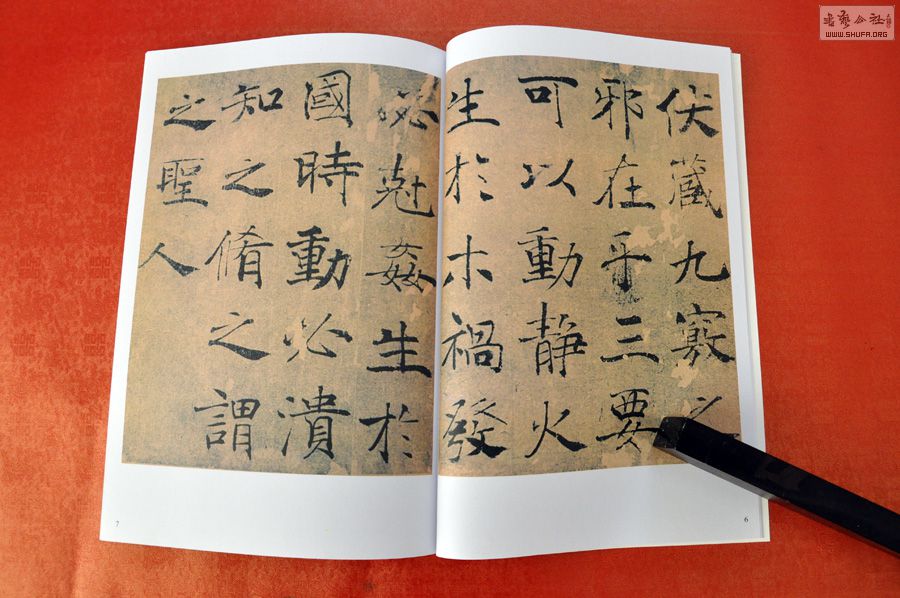 伏藏九竅之
邪在乎三要
可以動靜火
生於木禍發
必尅姦生於
國時動必潰
知之脩之謂
之聖人
6
7
書藝公社
WWW.SHUFA.ORG